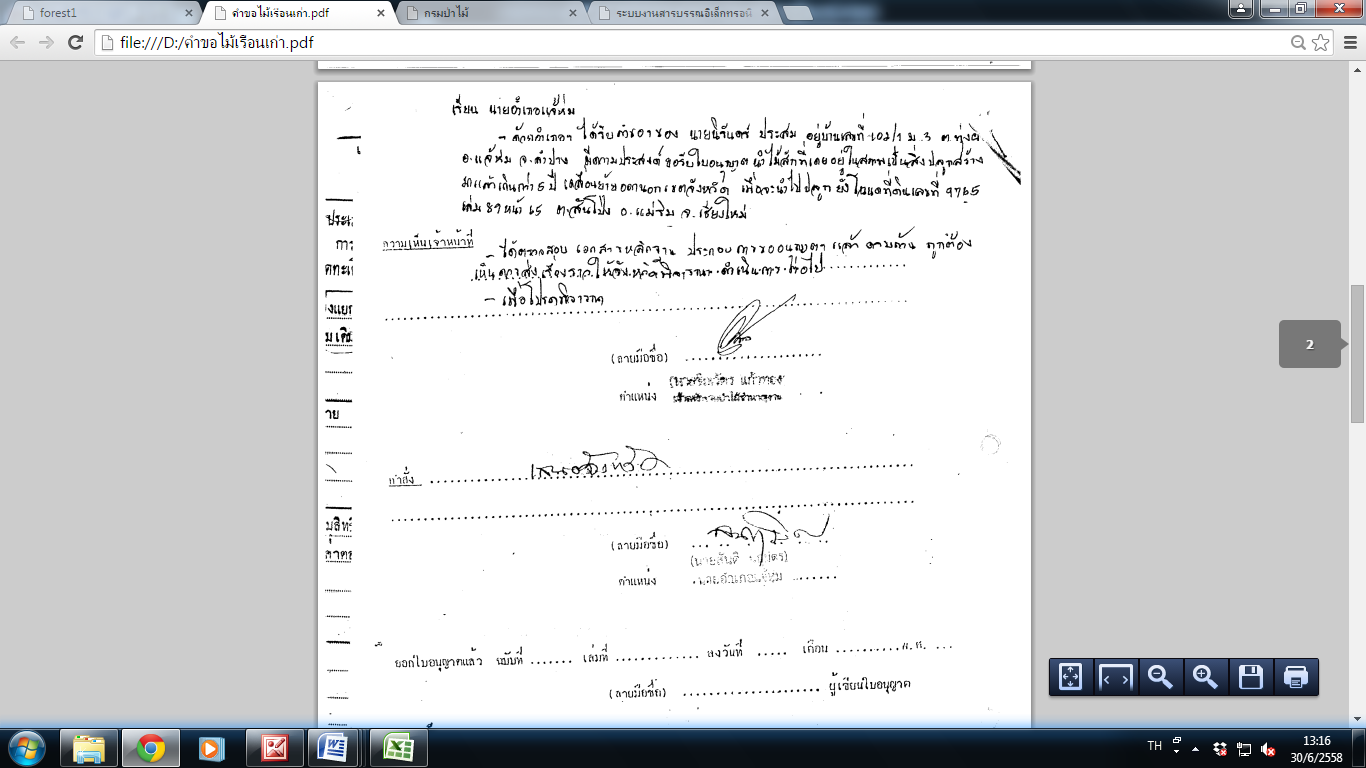 forest1
คำขอไม้เรือนเก่า.pdf
กรมป่าไม้
ระบบงานสารบรรณอิเล็กทรอนิ
file:///D:/คำขอไม้เรือนเก่า.pdf
เรียน นายอำเภอแจ้ห่ม
- ด้วยอำเภอฯ ได้รับคำขอของ นายนิรันดร์ ประสม อยู่บ้านเลขที่ 102/1 ม.3 ต.ทุ่งผึ้ง
อ.แจ้ห่ม จ.ลำปาง มีความประสงค์ ขอรับใบอนุญาต นำไม้สักที่เคยอยู่ในสภาพเป็นสิ่งปลูกสร้าง
มาแล้วเกินกว่า 5 ปี เคลื่อนย้ายออกนอกเขตจังหวัด เพื่อจะนำไปปลูก ยัง โฉนดที่ดินเลขที่ 9765
เล่ม 89 หน้า 65 ต.สันโป่ง อ.แม่ริม จ.เชียงใหม่
ความเห็นเจ้าหน้าที่
- ได้ตรวจสอบ เอกสารหลักฐาน ประกอบ การขออนุญาต แล้ว ครบถ้วน ถูกต้อง
เห็นควรส่งเรื่องราว ให้จังหวัดพิจารณา ดำเนินการ ต่อไป
- เพื่อโปรดพิจารณา
(ลายมือชื่อ)
แก้วทอง
ตำแหน่ง
คำสั่ง เสนอจังหวัด
(ลายมือชื่อ)
(นายสันติ
ตำแหน่ง นายอำเภอแจ้ห่ม
ออกใบอนุญาตแล้ว ฉบับที่ ....... เล่มที่ ............ ลงวันที่ ..... เดือน .......... พ.ศ. ...
(ลายมือชื่อ) .................... ผู้เขียนใบอนุญาต
2
TH
13:16
30/6/2558